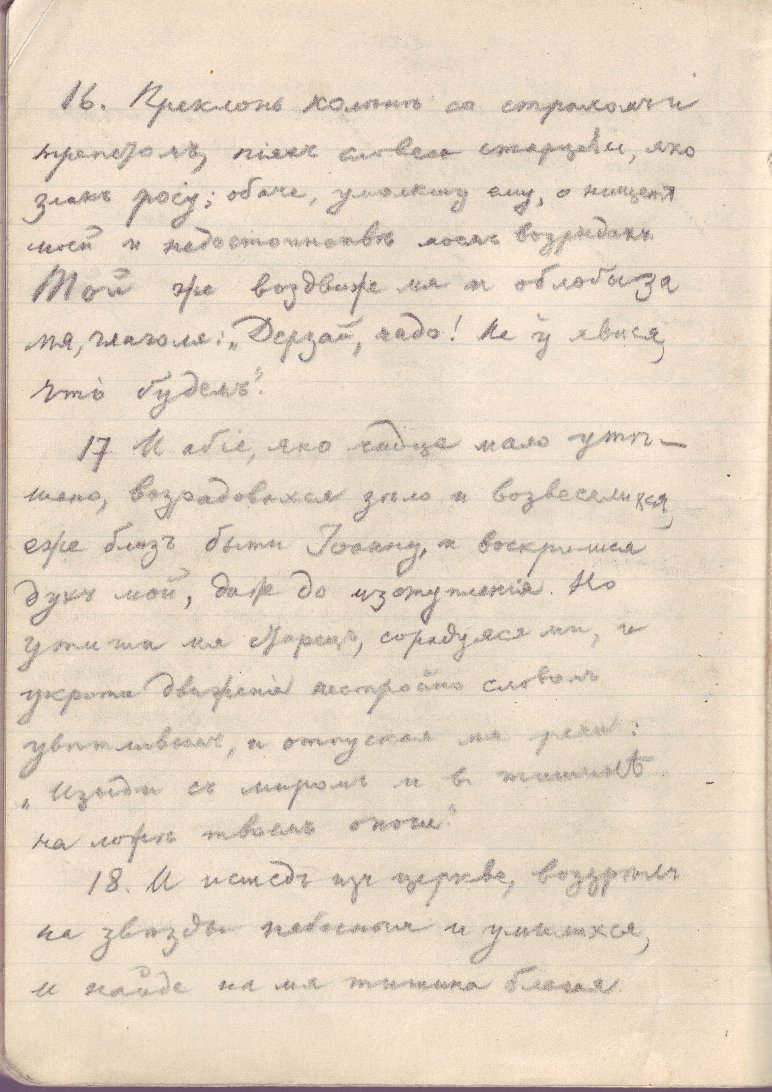 16. Преклонь колѣнѣ со страхомъ и
трепетомъ, піяхъ словеса старцевы, яко
злакъ росу; обаче, умолкшу ему, о нищетѣ
моей и недостоинствѣ моемъ возрыдахъ.
Той же воздвиже мя и облобыза
мя, глаголя: „Дерзай, чадо! Не у явися,
что будемъ“.
17 И абіе, яко чадце мало утѣ-
шено, возрадовахся зѣло и возвеселихся,
еже близъ быти Іоанну, и воскрылися
духъ мой, даже до изступленія. Но
утиша мя старецъ, сорадуяся ми, и
укроти движенія нестройна словомъ
увѣтливымъ, и отпуская мя рече:
„Изыди съ миромъ и въ тишинѣ
на ложѣ твоемъ опочій“.
18. И исшедъ изъ церкве, воззрѣхъ
на звѣзды небесныя и умилихся,
и найде на мя тишина благая.